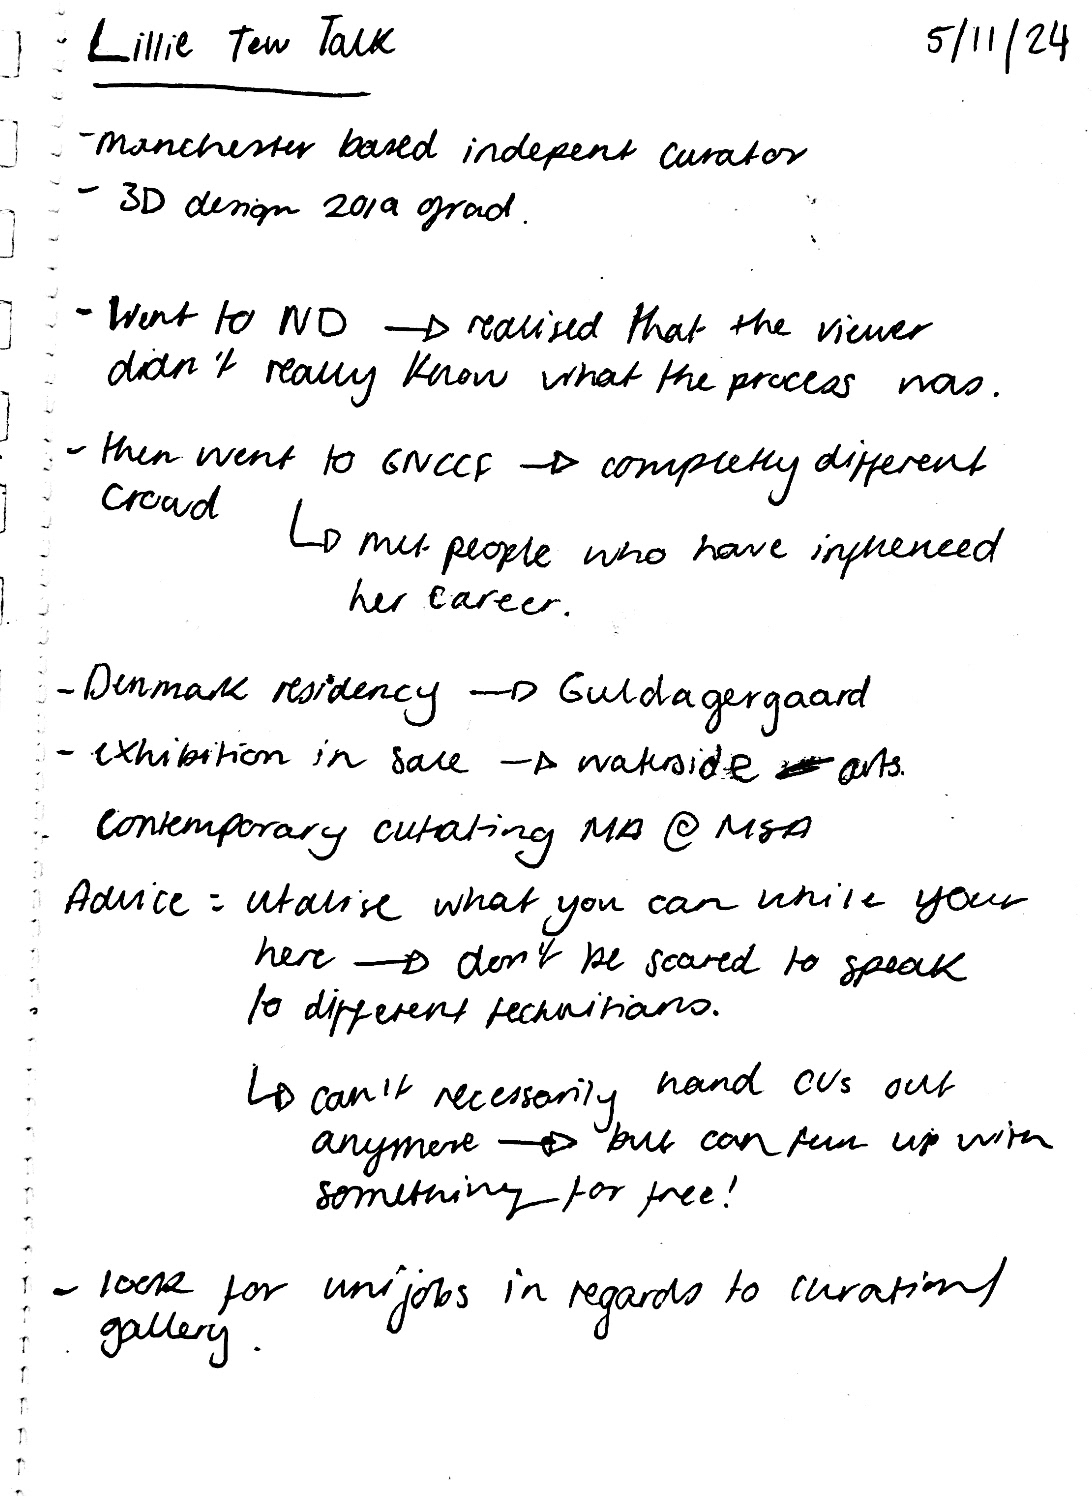 - Lillie Tew Talk 5/11/24
- Manchester based indepent curator
- 3D design 2019 grad.
- Went to ND → realised that the viewer
didn't really know what the process was.
- then went to GNCCF → completly different
crowd
↳ met people who have influenced
her career.
- Denmark residency → Guldagergaard
- exhibition in Sale → waterside arts.
- Contemporary curating MA @ MSA
Advice = utalise what you can while your
here → don't be scared to speak
to different technitians.
↳ can't necessarily hand CVs out
anymore → but can turn up with
something for free!
- look for uni jobs in regards to curation/
gallery.